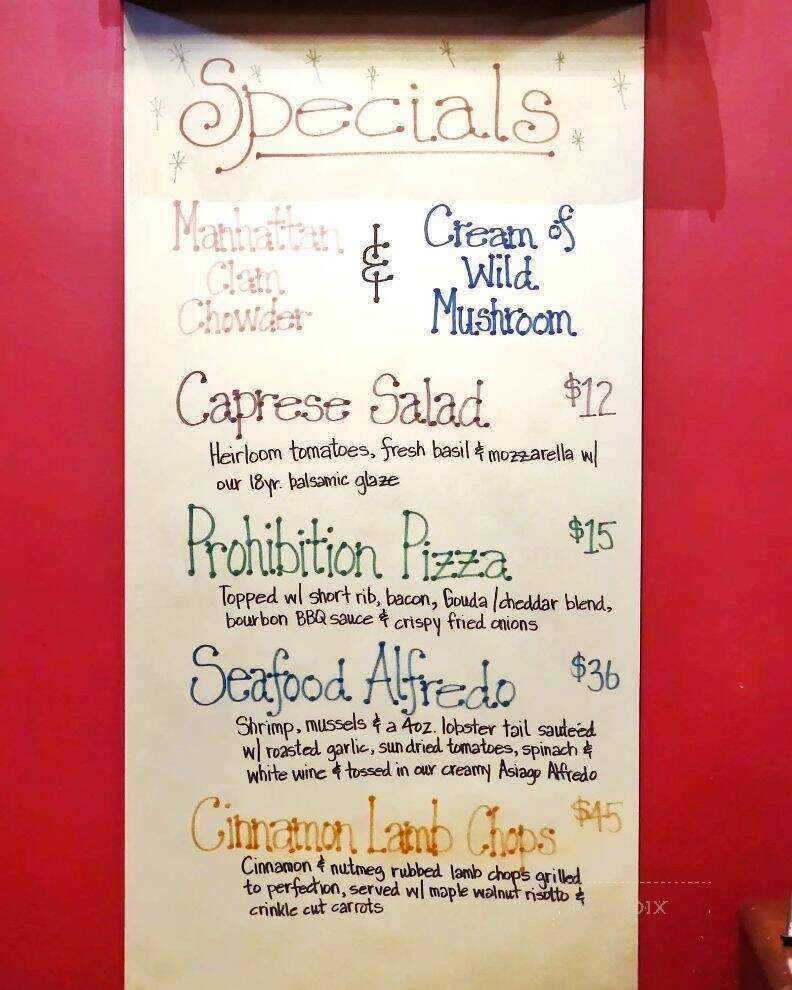 Specials
Manhattan
Clam
Chowder
&
Cream of
Wild
Mushroom
Caprese Salad $12
Heirloom tomatoes, fresh basil & mozzarella w/
our 18yr. balsamic glaze
Prohibition Pizza $15
Topped w/ short rib, bacon, Gouda/cheddar blend,
bourbon BBQ sauce & crispy fried onions
Seafood Alfredo $36
Shrimp, mussels & a 4oz. lobster tail sauteéd
w/ roasted garlic, sundried tomatoes, spinach &
white wine & tossed in our creamy Asiago Alfredo
Cinnamon Lamb Chops $45
Cinnamon & nutmeg rubbed lamb chops grilled
to perfection, served w/ maple walnut risotto &
crinkle cut carrots